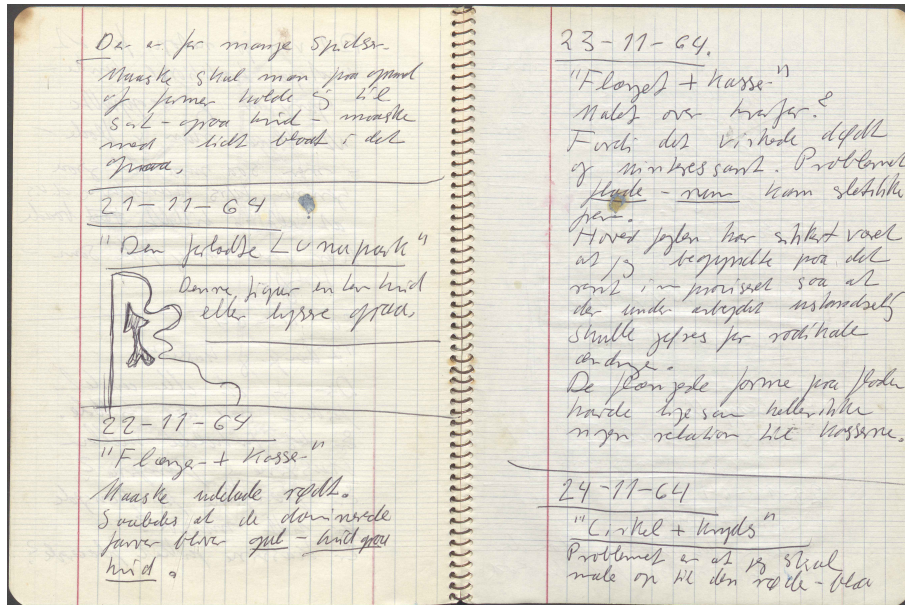 Der er for mange spidser.
Maaske skal man paa grund
af former holde sig til
sort - graa hvid - maaske
med lidt blaat i det
graa.
21-11-64
"Den forladte Lunapark"
Denne figur enten hvid
eller lysere graa.
22-11-64
"Flænger + Kasser"
Maaske udelade rødt.
Saaledes at de dominerede
farver bliver gul - hvid graa
hvid.
23-11-64.
"Flænget + Kasser"
Malet over hvorfor?
Fordi det virkede dødt
og uinteressant. Problemet
flade - rum kom slet ikke
frem.
Hovedfejlen har sikkert været
at jeg begyndte paa det
rent improviseret saa at
der under arbejdet
skulle gøres for radikale
ændringer.
De flængede forme paa fladen
havde ligesom heller ikke
nogen relation til kasserne.
24-11-64
"Cirkel + Kryds"
Problemet er at jeg skal
male op til den røde - blaa